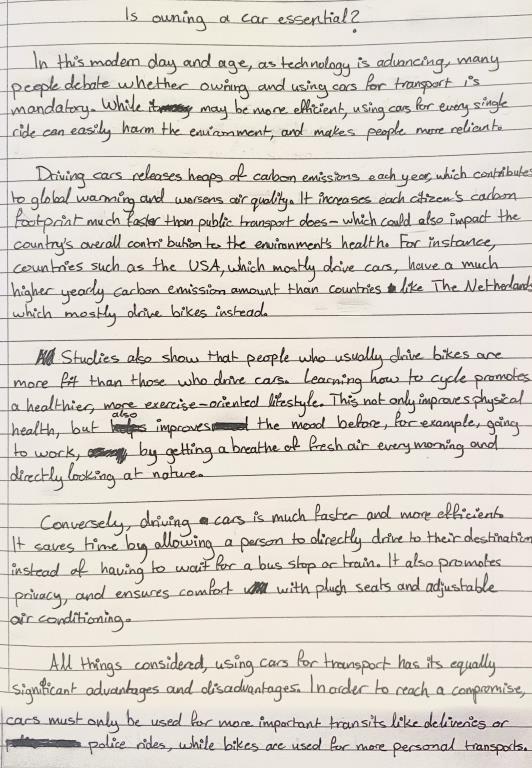 Is owning a car essential?
In this modern day and age, as technology is advancing, many
people debate whether owning and using cars for transport is
mandatory. While may be more efficient, using cars for every single
ride can easily harm the enviornment, and makes people more reliant.
Driving cars releases heaps of carbon emissions each year, which contributes
to global warming and worsens air quality. It increases each citizen's carbon
footprint much faster than public transport does - which could also impact the
country's overall contribution to the environment's health. For instance,
countries such as the USA, which mostly drive cars, have a much
higher yearly carbon emission amount than countries like The Netherlands
which mostly drive bikes instead.
Studies also show that people who usually drive bikes are
more fit than those who drive cars. Learning how to cycle promotes
a healthier, more exercise-oriented lifestyle. This not only improves physical
health, but also improves the mood before, for example, going
to work, by getting a breathe of fresh air every morning and
directly looking at nature.
Conversely, driving cars is much faster and more efficient.
It saves time by allowing a person to directly drive to their destination
instead of having to wait for a bus stop or train. It also promotes
privacy, and ensures comfort with plush seats and adjustable
air conditioning.
All things considered, using cars for transport has its equally
significant advantages and disadvantages. In order to reach a compromise,
cars must only be used for more important transits like deliveries or
police rides, while bikes are used for more personal transports.